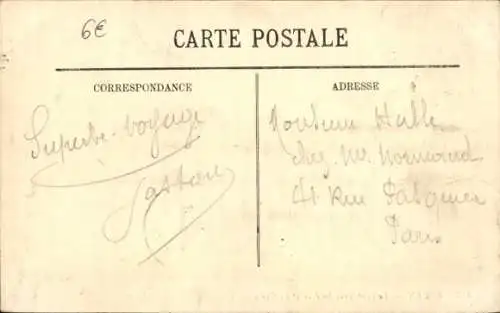 6€
CARTE POSTALE
CORRESPONDANCE
ADRESSE
Superbe voyage
Gaston
Monsieur Halle
chez Mr Normand
41 Rue Pasquier
Paris